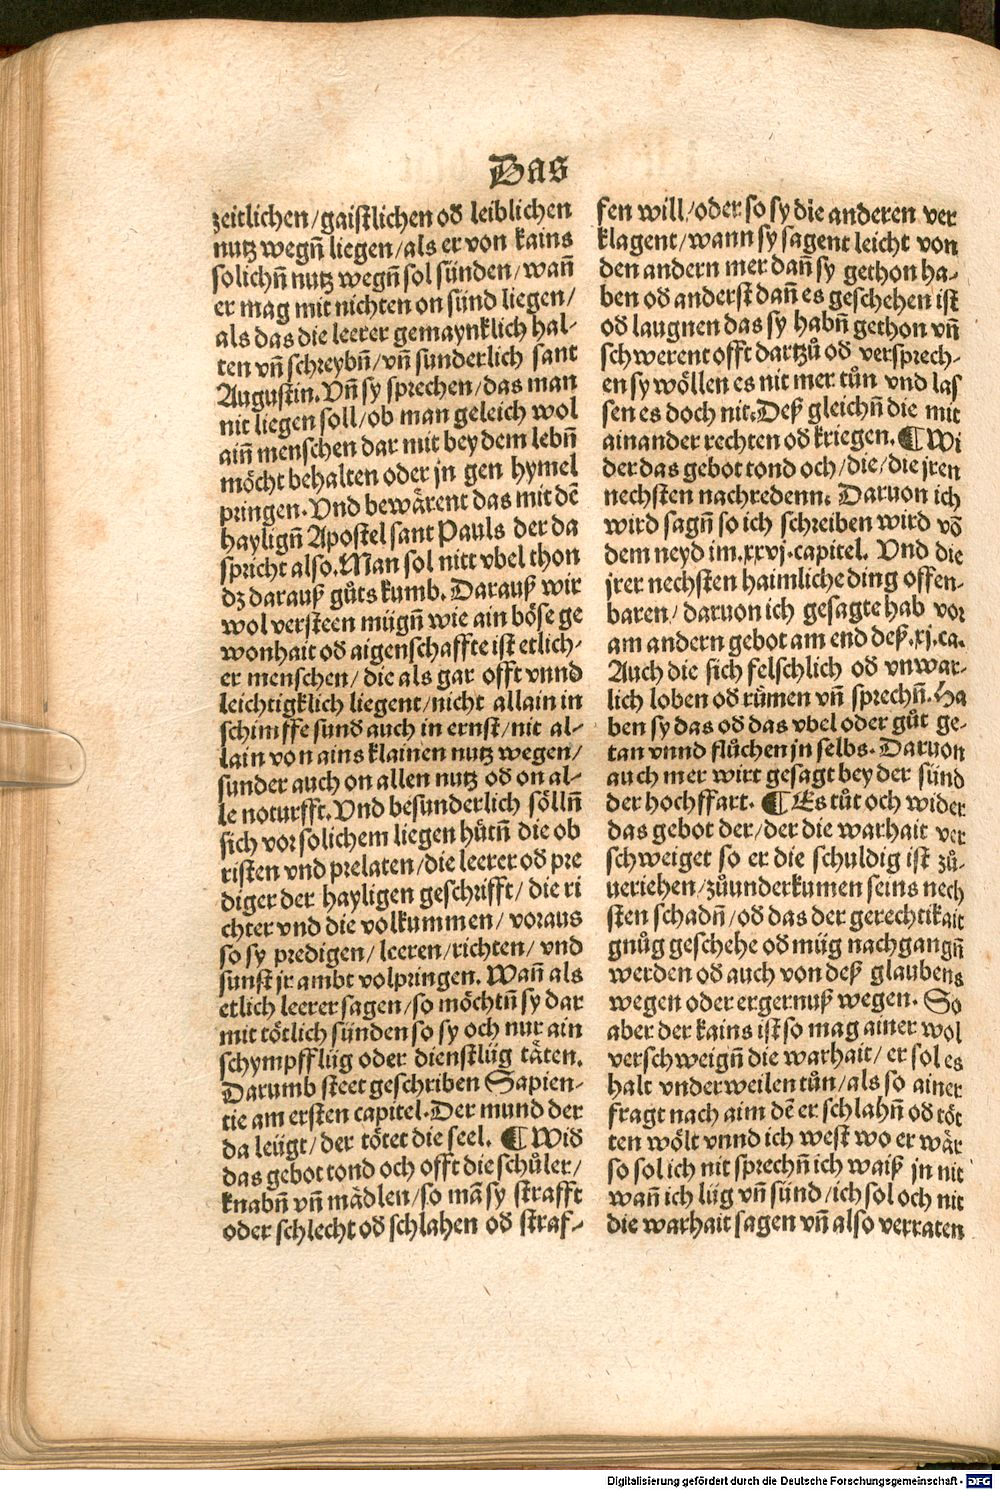 Das
zeitlichen/gaistlichen od̄ leiblichen
nutz wegn̄ liegen/als er von kains
solichn̄ nutz wegn̄ sol sünden/wan̄
er mag mit nichten on sünd liegen/
als das die leerer gemaynklich hal-
ten vn̄ schreybn̄/vn̄ sunderlich sant
Augustin. Vn̄ sy sprechen/das man
nit liegen soll/ob man geleich wol
ain̄ menschen dar mit bey dem lebn̄
möcht behalten oder jn gen hymel
pringen. Vnd bewärent das mit dē
haylign̄ Apostel sant Pauls der da
spricht also. Man sol nitt vbel thon
dz darauß gůts kumb. Darauß wir
wol versteen mügn̄ wie ain böse ge
wonhait od̄ aigenschaffte ist etlich-
er menschen/die als gar offt vnnd
leichtigklich liegent/nicht allain in
schimffe sund auch in ernst/nit al-
lain von ains klainen nutz wegen/
sunder auch on allen nutz od̄ on al-
le noturfft. Vnd besunderlich sölln̄
sich vor solichem liegen hůtn̄ die ob
risten vnd prelaten/die leerer od̄ pre
diger der hayligen geschrifft/die ri
chter vnd die volkummen/voraus
so sy predigen/leeren/richten/vnd
sunst jr ambt volpringen. Wan̄ als
etlich leerer sagen/so möchtn̄ sy dar
mit tötlich sünden so sy och nur ain
schympfflüg oder dienstlüg täten.
Darumb steet geschriben Sapien-
tie am ersten capitel. Der mund der
da leügt/der tötet die seel. ¶ Wid̄
das gebot tond och offt die schůler/
knabn̄ vn̄ mädlen/so mā sy strafft
oder schlecht od̄ schlahen od̄ straf-
fen will/oder so sy die anderen ver
klagent/wann sy sagent leicht von
den andern mer dan̄ sy gethon ha-
ben od̄ anderst dan̄ es geschehen ist
od̄ laugnen das sy habn̄ gethon vn̄
schwerent offt dartzů od̄ versprech-
en sy wöllen es nit mer tůn vnd las
sen es doch nit. Deß gleichn̄ die mit
ainander rechten od̄ kriegen. ¶ Wi
der das gebot tond och/die/die jren
nechsten nachredenn. Daruon ich
wird sagn̄ so ich schreiben wird vō
dem neyd im .xxvj. capitel. Vnd die
jrer nechsten haimliche ding offen-
baren/daruon ich gesagte hab vor
am andern gebot am end deß .xj. ca.
Auch die sich felschlich od̄ vnwar-
lich loben od̄ růmen vn̄ sprechn̄. Ha
ben sy das od̄ das vbel oder gůt ge-
tan vnnd flůchen jn selbs. Daruon
auch mer wirt gesagt bey der sünd
der hochffart. ¶ Es tůt och wider
das gebot der/der die warhait ver
schweiget so er die schuldig ist zů-
ueriehen/zůunderkumen seins nech
sten schadn̄/od̄ das der gerechtikait
gnůg geschehe od̄ müg nachgangn̄
werden od̄ auch von deß glaubens
wegen oder ergernuß wegen. So
aber der kains ist so mag ainer wol
verschweign̄ die warhait/er sol es
halt vnderweilen tůn/als so ainer
fragt nach aim dē er schlahn̄ od̄ töt
ten wölt vnnd ich west wo er wär
so sol ich nit sprechn̄ ich waiß jn nit
wan̄ ich lüg vn̄ sünd/ich sol och nit
die warhait sagen vn̄ also verraten
Digitalisierung gefördert durch die Deutsche Forschungsgemeinschaft - DFG